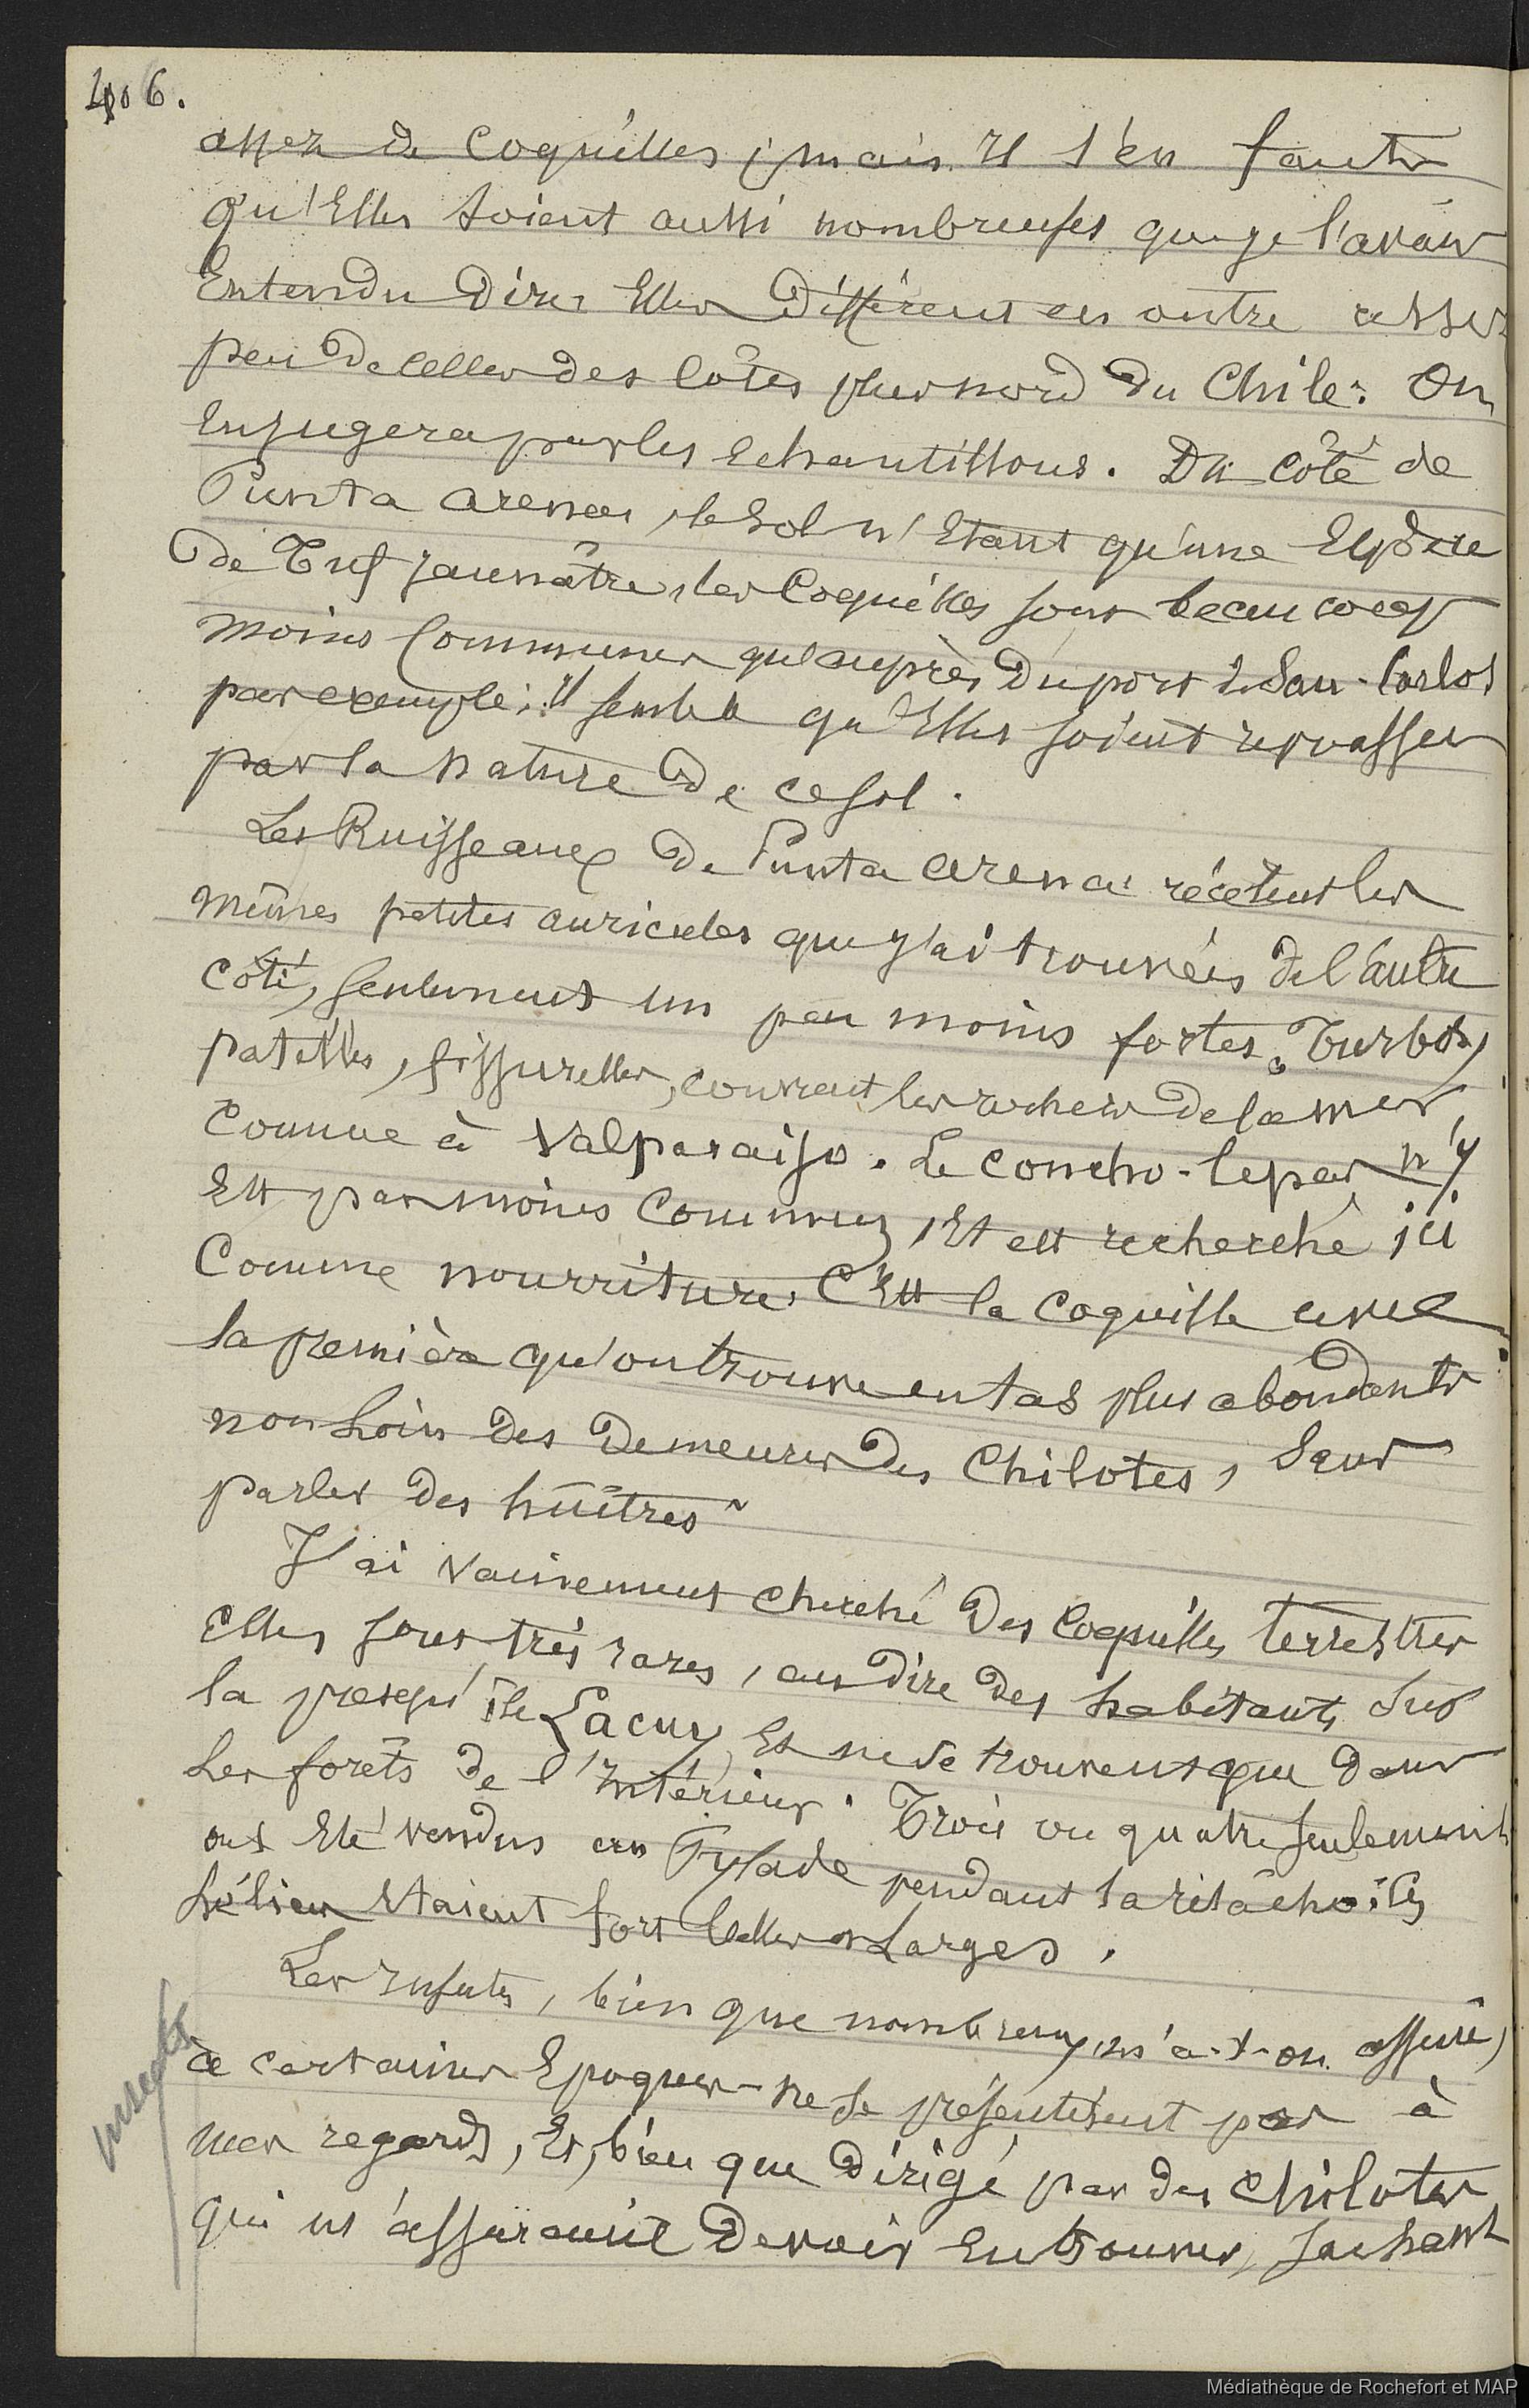 406.
assez de Coquilles ; mais Il s'en faut
qu'Elles soient aussi nombreuses que je l'avais
Entendu dire. Elles diffèrent en outre assez
peu de celles des côtes plus nord du Chile. On
En jugera par les Echantillons. Du côté de
Punta arenas, le sol n'Etant qu'une Espèce
de Tuf jaunâtre, les Coquilles sont beaucoup
moins Communes qu'auprès du port de San-Carlos
par exemple ; Il semble qu'Elles soient
par la nature de ce sol.
Les Ruisseaux de Punta arenas recèlent les
mêmes petites auricules que j'ai trouvées de l'autre
côté, seulement un peu moins fortes. Turbos,
patelles, fissurelles, couvrent les rochers de la mer
Comme à Valparaiso. Le concho-lepas n'y
Est pas moins Commun, Et est recherché ici
Comme nourriture. C'Est la coquille avec
la première qu'on trouve en tas plus abondants
non loin des demeures des Chilotes, sans
parler des huîtres
J'ai vainement cherché des Coquilles terrestres
Elles sont très rares, au dire des habitants sur
la presqu'île Lacuy, Et ne se trouvent que dans
les forêts de l'Intérieur. Trois ou quatre seulement
ont Eté vendus au Pylade pendant sa relâche : ces
hélices Etaient fort belles et Larges.
Les Insectes, bien que nombreux, m'a-t-on assuré,
à certaines Epoques - ne se présentèrent pas à
mes regards, Et, bien que dirigé par des Chilotes
qui m'assuraient devoir En trouver, sachant
insectes
Médiathèque de Rochefort et MAP